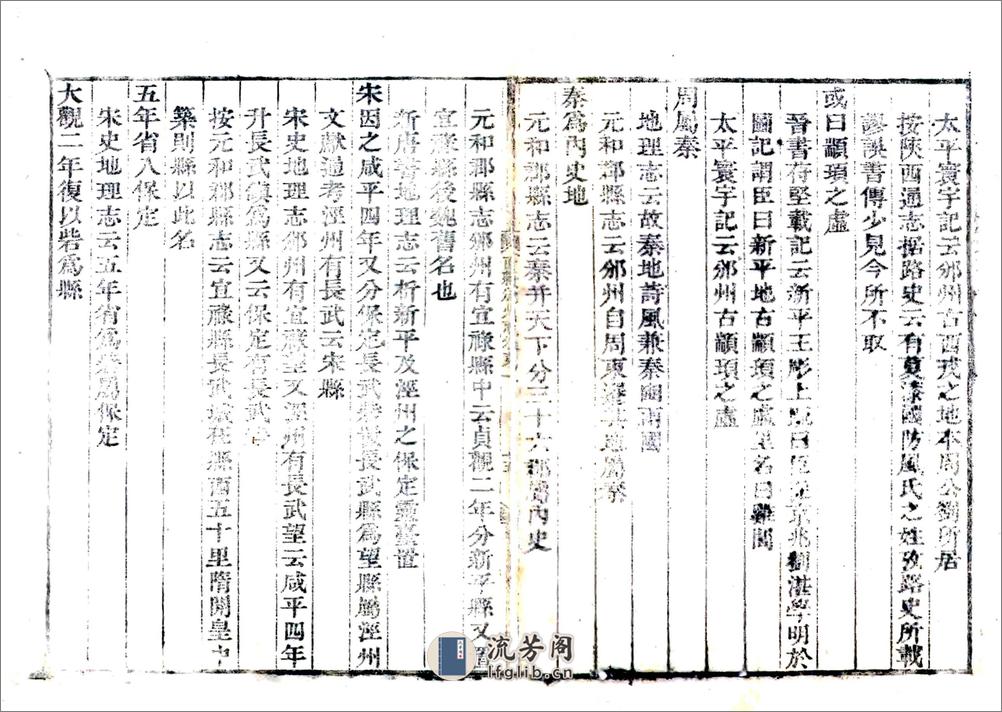 太平寰宇記云邠州古西戎之地本周公劉所居
按陝西通志據路史云有莫漆國防風氏之姓攷路史所載
謬誤書傳少見今所不取
或曰顓頊之虛
晉書苻堅載記云新平王彫上疏曰臣 京兆劉湛學明於
圖記謂臣曰新平地古顓頊之虛里名曰雞閭
太平寰宇記云邠州古顓頊之虛
周屬秦
地理志云故秦地詩風兼秦豳兩國
元和郡縣志云邠州自周東遷其地屬秦
秦爲內史地
元和郡縣志云秦并天下分三十六郡屬內史
元和郡縣志邠州有宜祿縣中云貞觀二年分新平縣又置
宜祿縣後魏舊名也
新唐書地理志云析新平及涇州之保定靈臺置
宋因之咸平四年又分保定長武 長武縣爲望縣屬涇州
文獻通考涇州有長武云宋縣
宋史地理志邠州有宜祿望又涇州有長武望云咸平四年
升長武鎮爲縣又云保定有長武寨
按元和郡縣志云宜祿縣長武城在縣西五十里隋開皇中
築則縣以此名
五年省入保定
宋史地理志云五年省爲寨屬保定
大觀二年復以砦爲縣
流芳阁
lfglib.cn